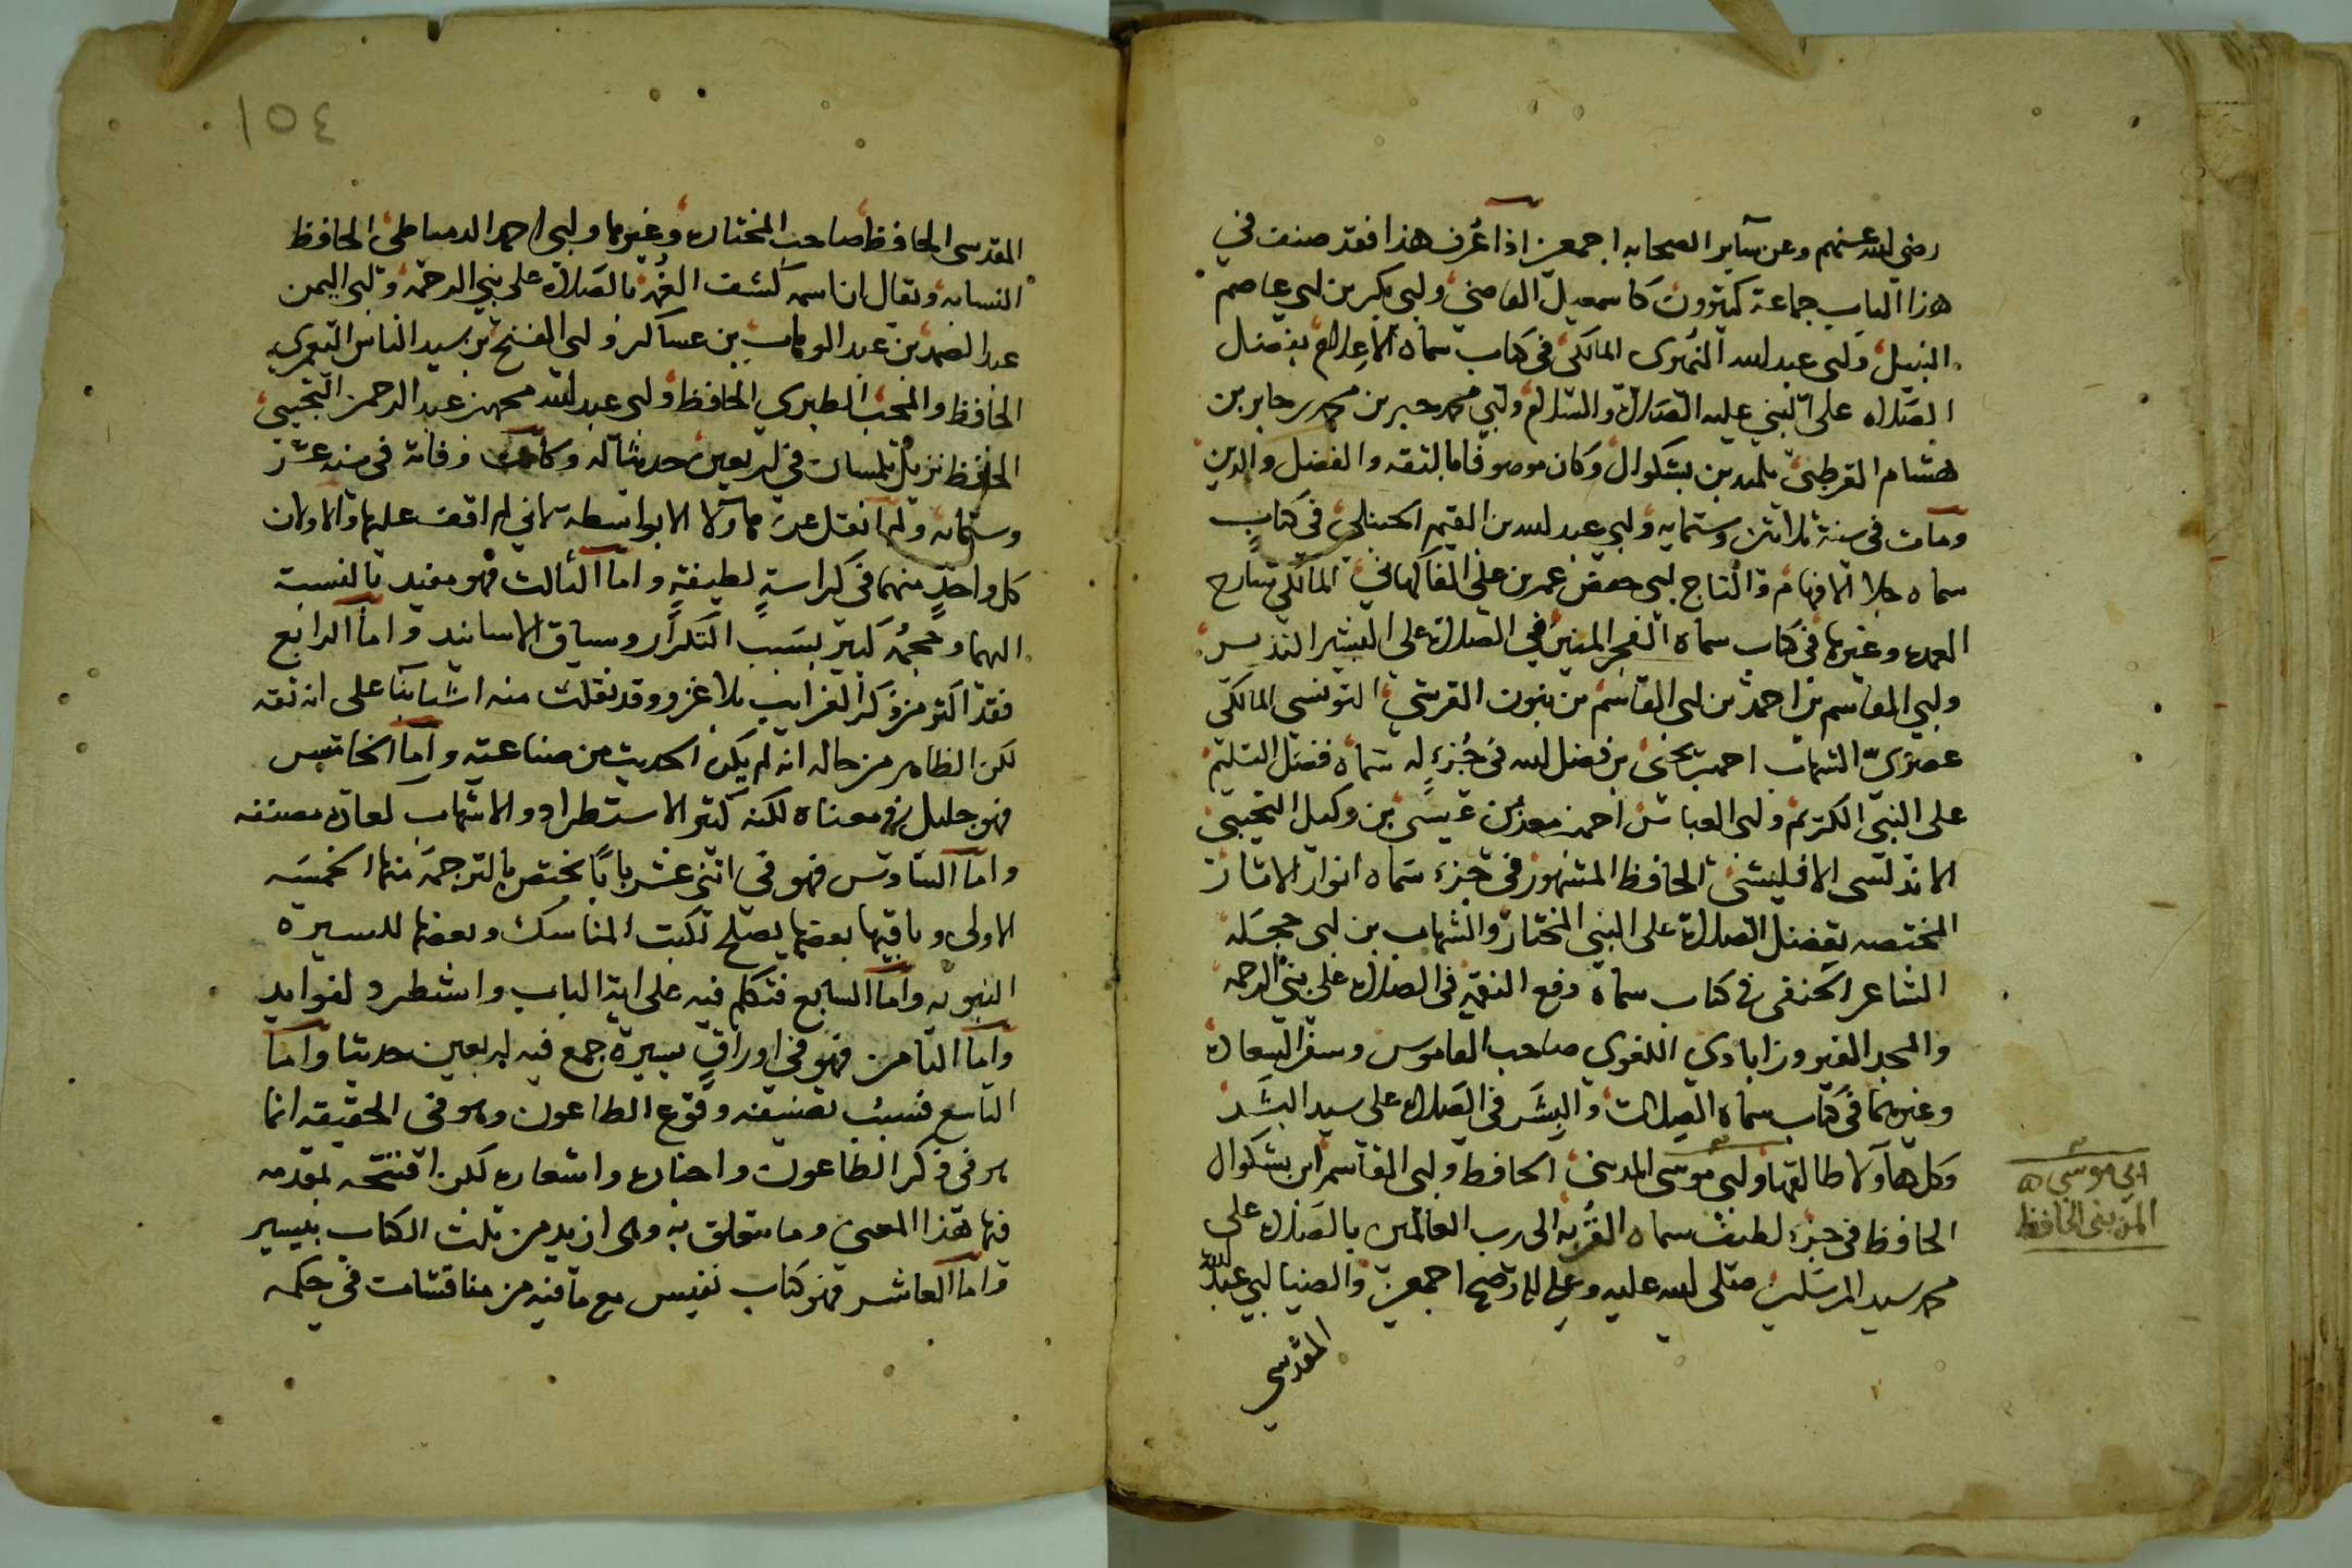 رضى الله عنهم وعن ساير الصحابه اجمعين اذا عُرف هذا فقد صنف في
هذا الباب جماعة كثيرون كاسمعيل القاضى ولبى بكر بن لبى عاصم
النبيل ولبى عبد الله النميرى المالكى فى كتاب سماه الاعلام بفضل
الصلاه على النبى عليه الصلاة والسلام ولبي محمد جبر بن محمد بن جابر بن
هشام القرطبى تلميذ بن بشكوال وكان موصوفا بالثقه والفضل والدين
ومات فى سنة ثلاثين وستمايه ولبي عبد الله بن القيم الحنبلى فى كتاب
سماه جلا الافهام والتاج لبى حفص عمر بن على الفاكهاني المالكي شارح
العمده وغيرها فى كتاب سماه الفجر المنير في الصلاة على البشير النذير
ولبي القاسم بن احمد بن لبى القاسم بن بنون القرشي التونسي المالكي
عصرىّ الشهاب احمد بن يحيى بن فضل الله فى جُزءٍ له سماه فضل التسليم
على النبى الكريم ولبى العباس احمد بن معد بن عيسى بن وكيل التجيبى
الاندلسى الاقليشى الحافظ المشهور فى جزء سماه انوار الاثار
المختصه بفضل الصلاة على النبى المختار والشهاب بن لبى حجله
الشاعر الحنفى فى كتاب سماه دفع النقمه فى الصلاه على نبى الرحمه
والمجد الفيروزابادي اللغوي صاحب القاموس وسفر السعاده
وغيرهما فى كتاب سماه الصلات والبشر فى الصلاه على سيد البشر
وكل هاولا طالعتها ولبى موسى المدينى الحافظ ولبى القاسم ابن بشكوال
الحافظ فى جزء لطيف سماه القُربه الى رب العالمين بالصلاه على
محمد سيد المرسلين صلى الله عليه وعلى اله وصحبه اجمعين والضيا لبي عبد الله
المقدسى
ابي موسى
المدينى الحافظ
١٥٤
المقدسى الحافظ صاحب المختاره وغيرها ولبى احمد الدمياطى الحافظ
النسابه ويقال ان اسمه كشف الغُمه بالصلاة على نبي الرحمه ولبى اليمن
عبد الصمد بن عبد الوهاب بن عساكر ولبى الفتح بن سيد الناس اليعمرى
الحافظ والمحب الطبري الحافظ ولبى عبد الله محمد بن عبد الرحمن التجيبى
الحافظ نزيل تلمسان في اربعين حديثا له وكانت وفاته فى سنه عشر
وستمايه ولم انقل عن هاولا الا بواسطه لانى لم اقف عليها والاولان
كل واحدٍ منهما فى كراسةٍ لطيفةٍ واما الثالث فهو مفيد بالنسبة
اليهما وحجمُه كبير بسبب التكرار وسياق الاسانيد واما الرابع
فقد اكثر من ذكر الغرايب بلا عزو وقد نقلت منه اشيآ بنا على انه ثقه
لكن الظاهر من حاله انه لم يكن الحديث من صناعته واما الخامس
فهو جليل فى معناه لكنه كثير الاستطراد والاسهاب لعادة مصنفه
واما السادس فهو فى اثنى عشر بابًا يختص بالترجمة منها الخمسه
الاولى وباقيها بعضها يصلح لكتب المناسك وبعضها للسيره
النبويه واما السابع فتكلم فيه على اية الباب واستطرد لفوايد
واما الثامن فهو في اوراقٍ يسيرة جمع فيه اربعين حديثا واما
التاسع فسبب تصنيفه وقوع الطاعون وهو فى الحقيقه انما
هو فى ذكر الطاعون واخباره واشعاره لكن افتتحه بمقدمه
فيها هذا المعنى وما يتعلق به وهى ازيد من ثلث الكتاب بيسير
واما العاشر فهو كتاب نفيس مع ما فيه من مناقشات في حكمه